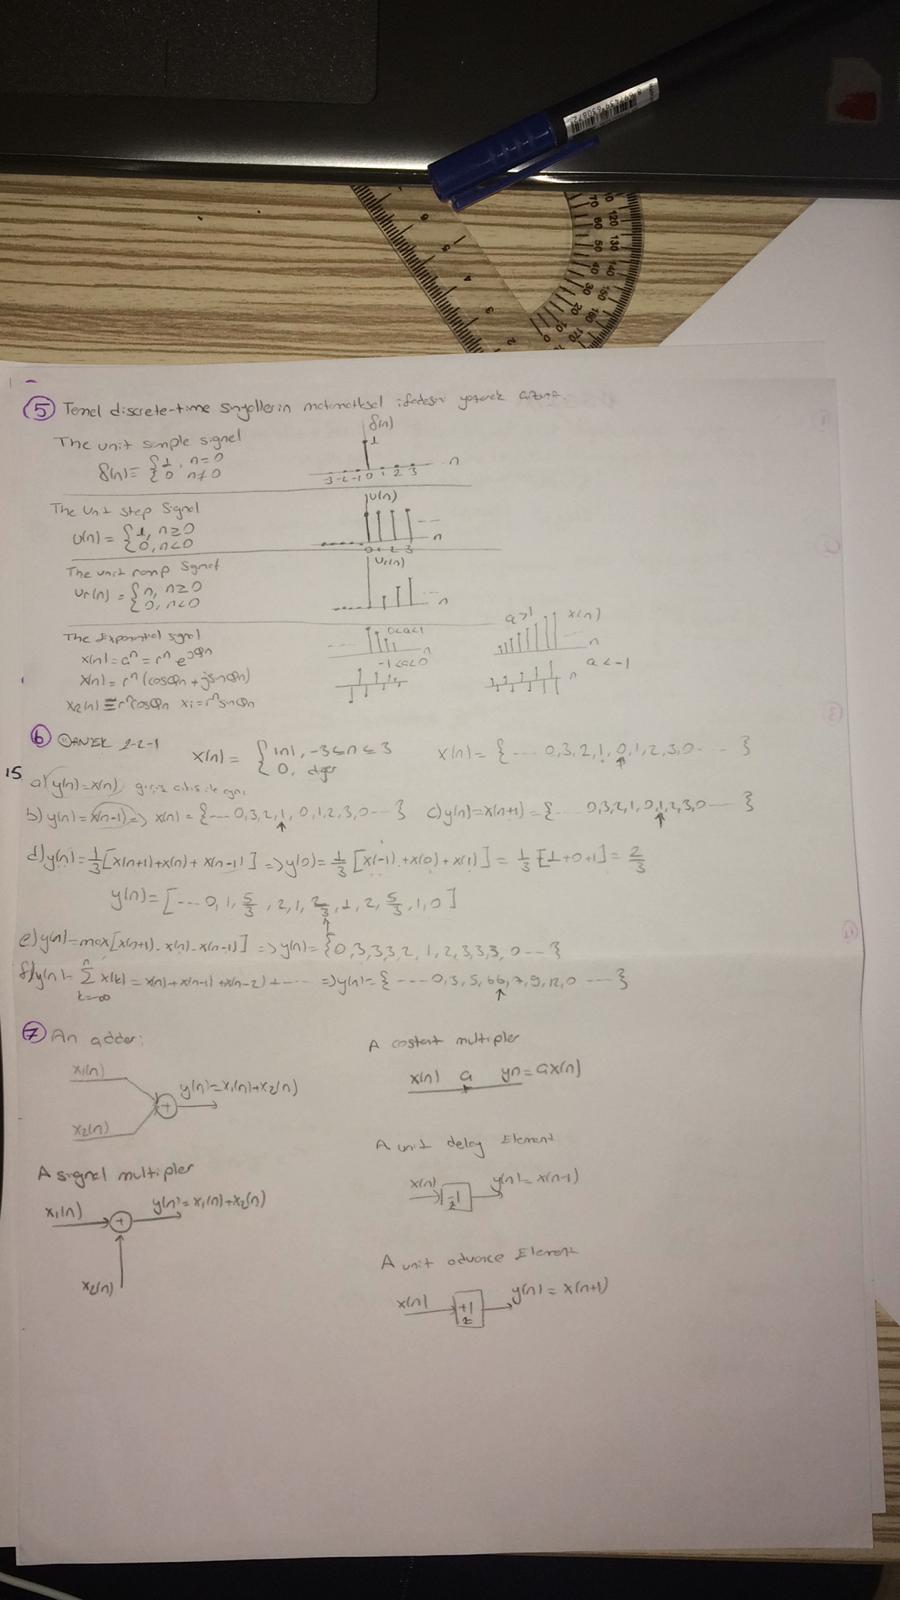 5 Temel discrete-time sinyallerin matematiksel ifadesini yazarak çiziniz.
The unit sample signal
δ(n) = { 1, n=0
0, n≠0
δ(n)
1
-3 -2 -1 0 1 2 3 n
The unit step signal
u(n) = { 1, n≥0
0, n<0
u(n)
0 1 2 3 n
The unit ramp signal
ur(n) = { n, n≥0
0, n<0
ur(n)
n
The Exponential signal
x(n)=aⁿ=rⁿ e^jθn
x(n)=rⁿ(cosθn+jsinθn)
0<a<1 n
a>1 x(n) n
-1<a<0
a<-1 n
6 ÖRNEK 2-2-1 x(n) = { |n|, -3≤n≤3
0, diğer
x(n)={---- 0,3,2,1,0,1,2,3,0- -- }
↑
15
a) y(n)=x(n)
b) y(n)=x(n-1)=> x(n)={---0,3,2,1,0,1,2,3,0---} c) y(n)=x(n+1)={---- 0,3,2,1,0,1,2,3,0---- }
↑ ↑
d) y(n)=1/3[x(n+1)+x(n)+x(n-1)] => y(0)=1/3[x(-1)+x(0)+x(1)]=1/3[1+0+1]=2/3
y(n)=[---0,1,5/3,2,1,2/3,1,2,5/3,1,0]
↑
e) y(n)=max[x(n+1)-x(n)-x(n-1)] => y(n)={0,3,3,3,2,1,2,3,3,3,0---}
↑
f) y(n)=Σ x(k) = x(n)+x(n-1)+x(n-2)+---- => y(n)={----0,3,5,6,6,7,9,12,0----}
↑
7 An adder:
x1(n)
x2(n)
+
y(n)=x1(n)+x2(n)
A costant multipler
x(n) a yn=ax(n)
A signal multipler
x1(n) + y(n)=x1(n)+x2(n)
x2(n)
A unit delay Element
x(n) z⁻¹ y(n)=x(n-1)
A unit advance Element
x(n) z⁺¹ y(n)=x(n+1)